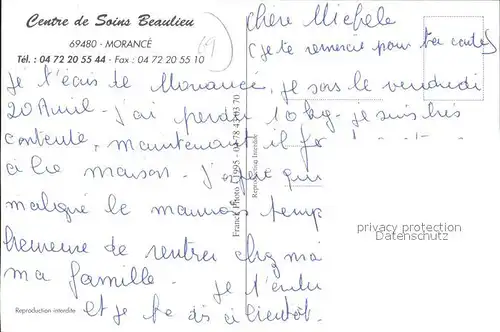 Centre de Soins Beaulieu
69480 - MORANCÉ
Tél. : 04 72 20 55 44 - Fax : 04 72 20 55 10
69
Chère Michele
(je te remercie pour ta carte)
Je t'écris de Morancé, je sors le vendredi
20 Avril - j'ai perdu 10 kg - je suis très
contente, maintenant il
maison - j'
malgré le mauvais temp
heureuse de rentrer chez moi
ma famille - Je t'
et je te dis à bientôt.
Reproduction interdite
Reproduction Interdite
privacy protection
Datenschutz